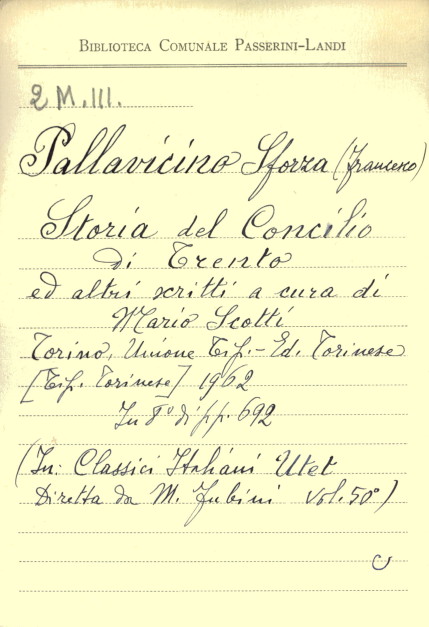 BIBLIOTECA COMUNALE PASSERINI-LANDI
2 M.III.
Pallavicino Sforza (Francesco)
Storia del Concilio
di Trento
ed altri scritti a cura di
Mario Scotti
Torino, Unione Tip.-Ed. Torinese
[Tip. Torinese] 1962
In 8° di pp. 692
(In: Classici Italiani Utet
Diretta da M. Fubini vol. 50°)